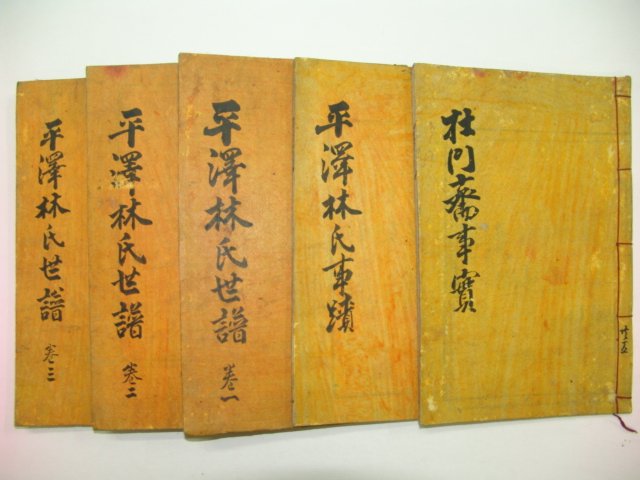 杜門齋事實
共五
平澤林氏事蹟
平澤林氏世譜
卷一
平澤林氏世譜
卷二
平澤林氏世譜
卷三